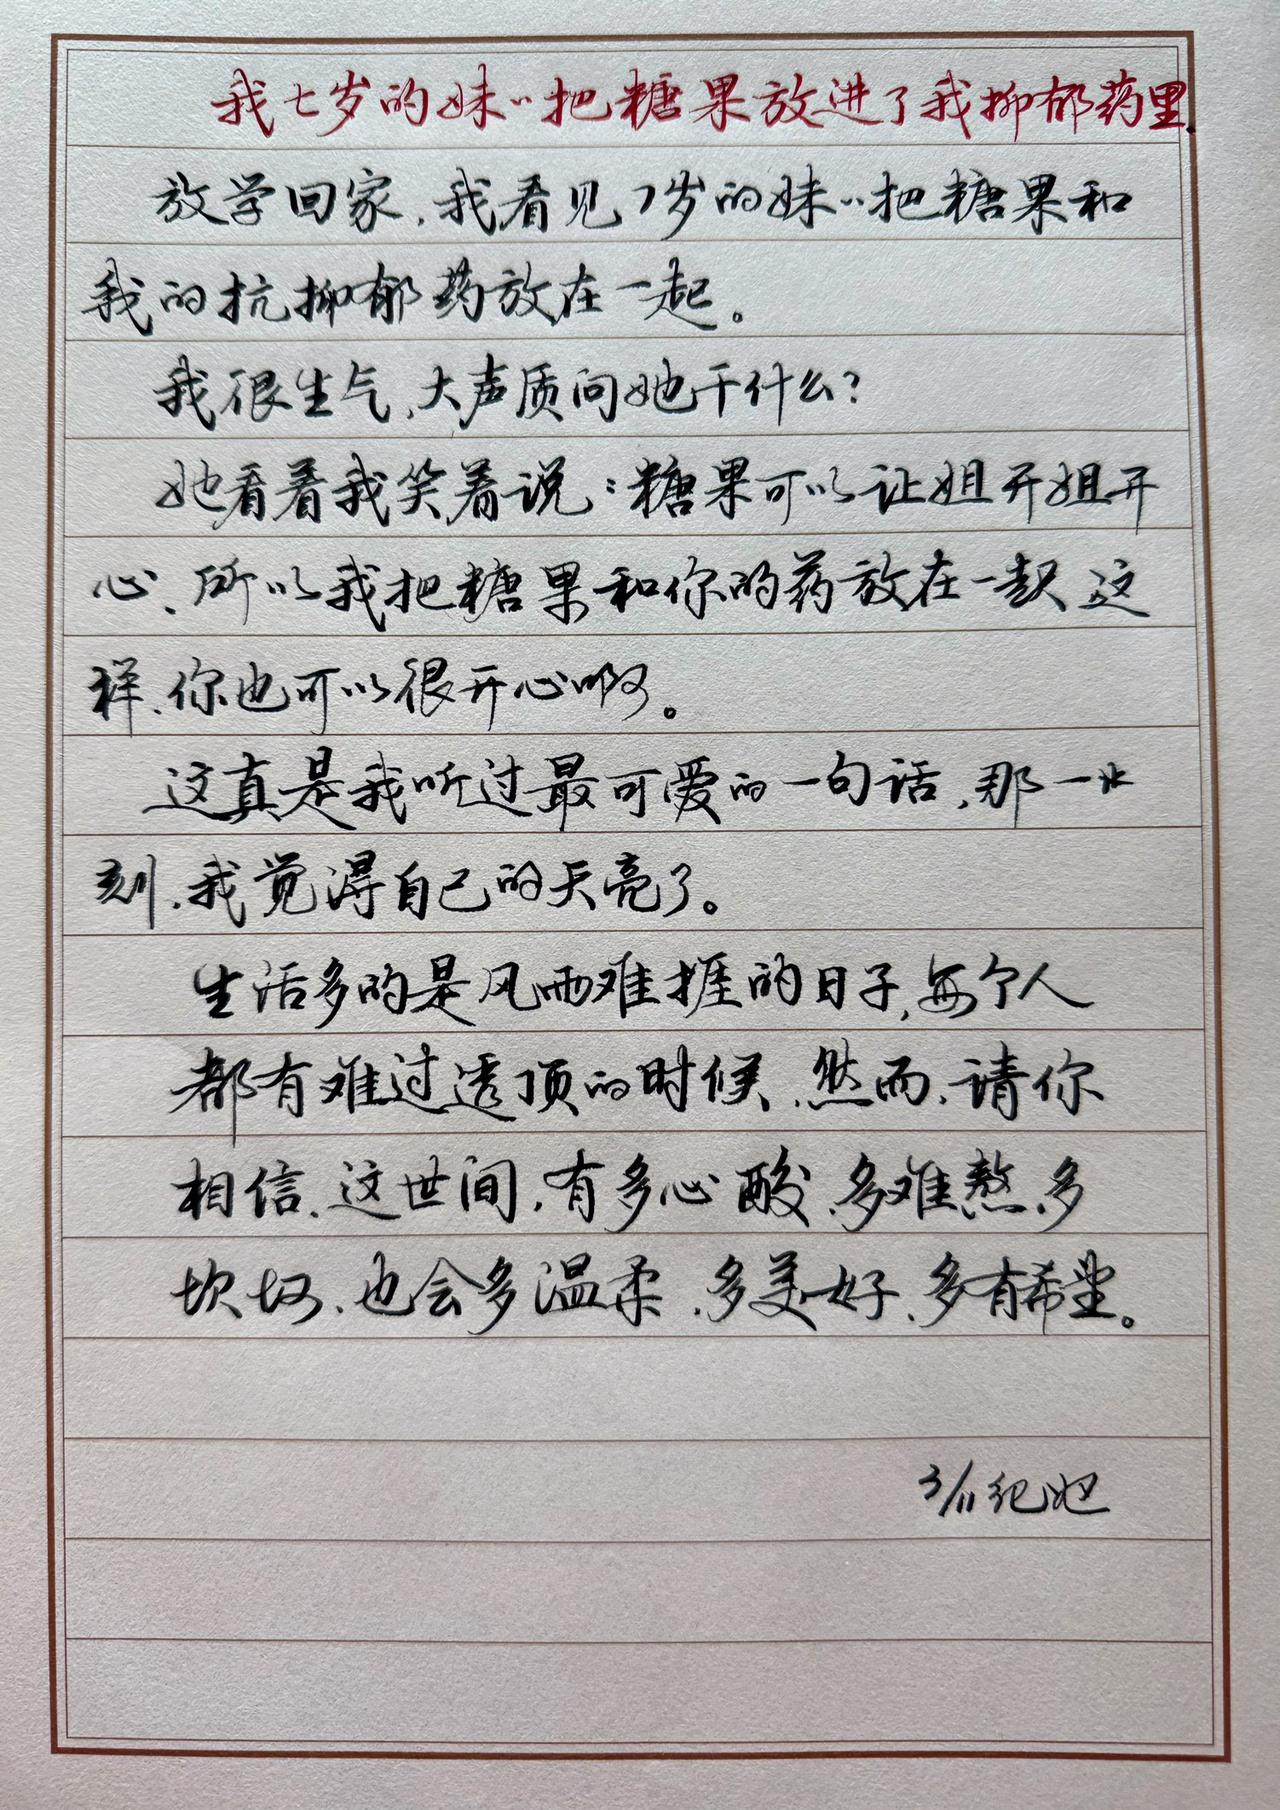 我七岁的妹〻把糖果放进了我抑郁药里.
放学回家,我看见7岁的妹〻把糖果和
我的抗抑郁药放在一起。
我很生气,大声质问她干什么?
她看着我笑着说:糖果可以让姐开姐开
心、所以我把糖果和你的药放在一起 这
样、你也可以很开心啊。
这真是我听过最可爱的一句话,那一
刻,我觉得自己的天亮了。
生活多的是风雨难捱的日子,每个人
都有难过透顶的时候、然而,请你
相信、这世间,有多心酸、多难熬、多
坎坷、也会多温柔、多美好、多有希望。
3/11 纪